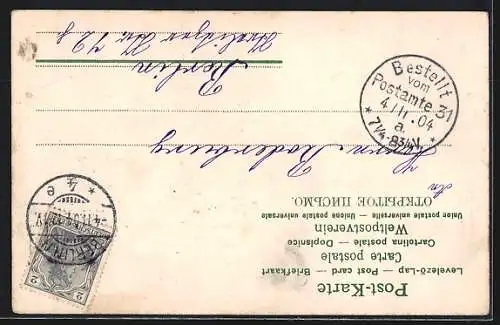 Post-Karte
Levelező-Lap — Post card — Briefkaart
Carte postale
Cartolina postale — Dopisnice
Weltpostverein
Union postale universelle — Unione postale universale
ОТКРЫТОЕ ПИСЬМО.
An
Herrn
Berlin
Bestellt
vom
Postamte 31
4/11.04
a.
* 7¼-8¾V. *
BERLIN
* 4 e
2 2